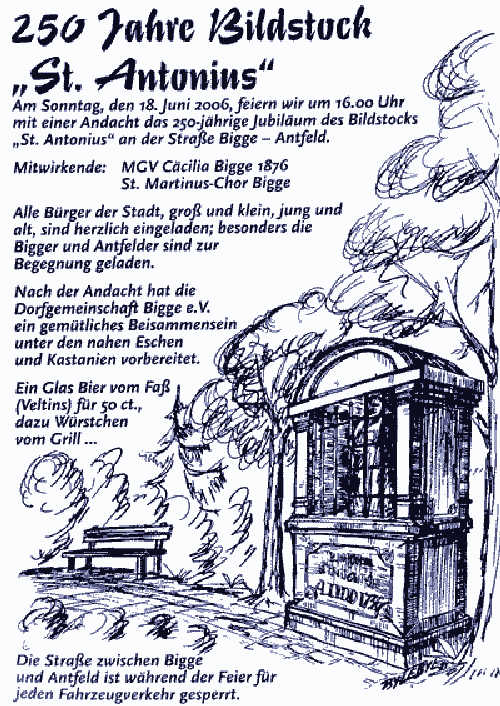 250 Jahre Bildstock
„St. Antonius“
Am Sonntag, den 18. Juni 2006, feiern wir um 16.00 Uhr
mit einer Andacht das 250-jährige Jubiläum des Bildstocks
„St. Antonius“ an der Straße Bigge – Antfeld.
Mitwirkende: MGV Cäcilia Bigge 1876
St. Martinus-Chor Bigge
Alle Bürger der Stadt, groß und klein, jung und
alt, sind herzlich eingeladen; besonders die
Bigger und Antfelder sind zur
Begegnung geladen.
Nach der Andacht hat die
Dorfgemeinschaft Bigge e.V.
ein gemütliches Beisammensein
unter den nahen Eschen
und Kastanien vorbereitet.
Ein Glas Bier vom Faß
(Veltins) für 50 ct.,
dazu Würstchen
vom Grill ...
Die Straße zwischen Bigge
und Antfeld ist während der Feier für
jeden Fahrzeugverkehr gesperrt.